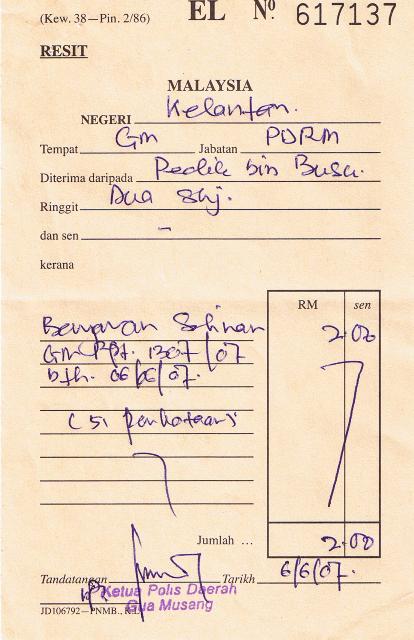 (Kew. 38—Pin. 2/86) EL Nº 617137
RESIT
MALAYSIA
NEGERI Kelantan.
Tempat GM Jabatan PDRM
Diterima daripada bin Busu.
Ringgit Dua Shj.
dan sen -
kerana
RM sen
Bayaran Salinan 2.00
GM Rpt. 1307/07
bth. 06/06/07.
Jumlah ... 2.00
Tandatangan Tarikh 6/6/07.
Ketua Polis Daerah
Gua Musang
JD106792—PNMB., K.L.